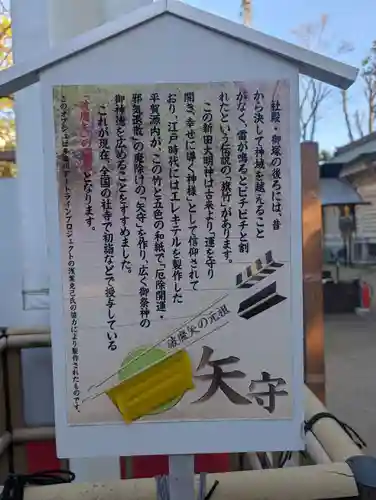 社殿・御塚の後ろには、昔
から決して神域を越えること
がなく、雷が鳴るとピチピチと割
れたという伝説の「旗竹」があります。
この新田大明神は古来より「運を守り
開き、幸せに導く神様」として信仰されて
おり、江戸時代にはエレキテルを製作した
平賀源内が、この竹と五色の和紙で「厄除開運・
邪気退散」の魔除けの「矢守」を作り、広く御祭神の
御神徳を広めることをすすめました。
これが現在、全国の社寺で初詣などで授与している
「破魔矢」の元祖となります。
このオブジェは多摩川アートラインプロジェクトの浅葉克己氏の協力により製作されたものです。
破魔矢の元祖
矢守